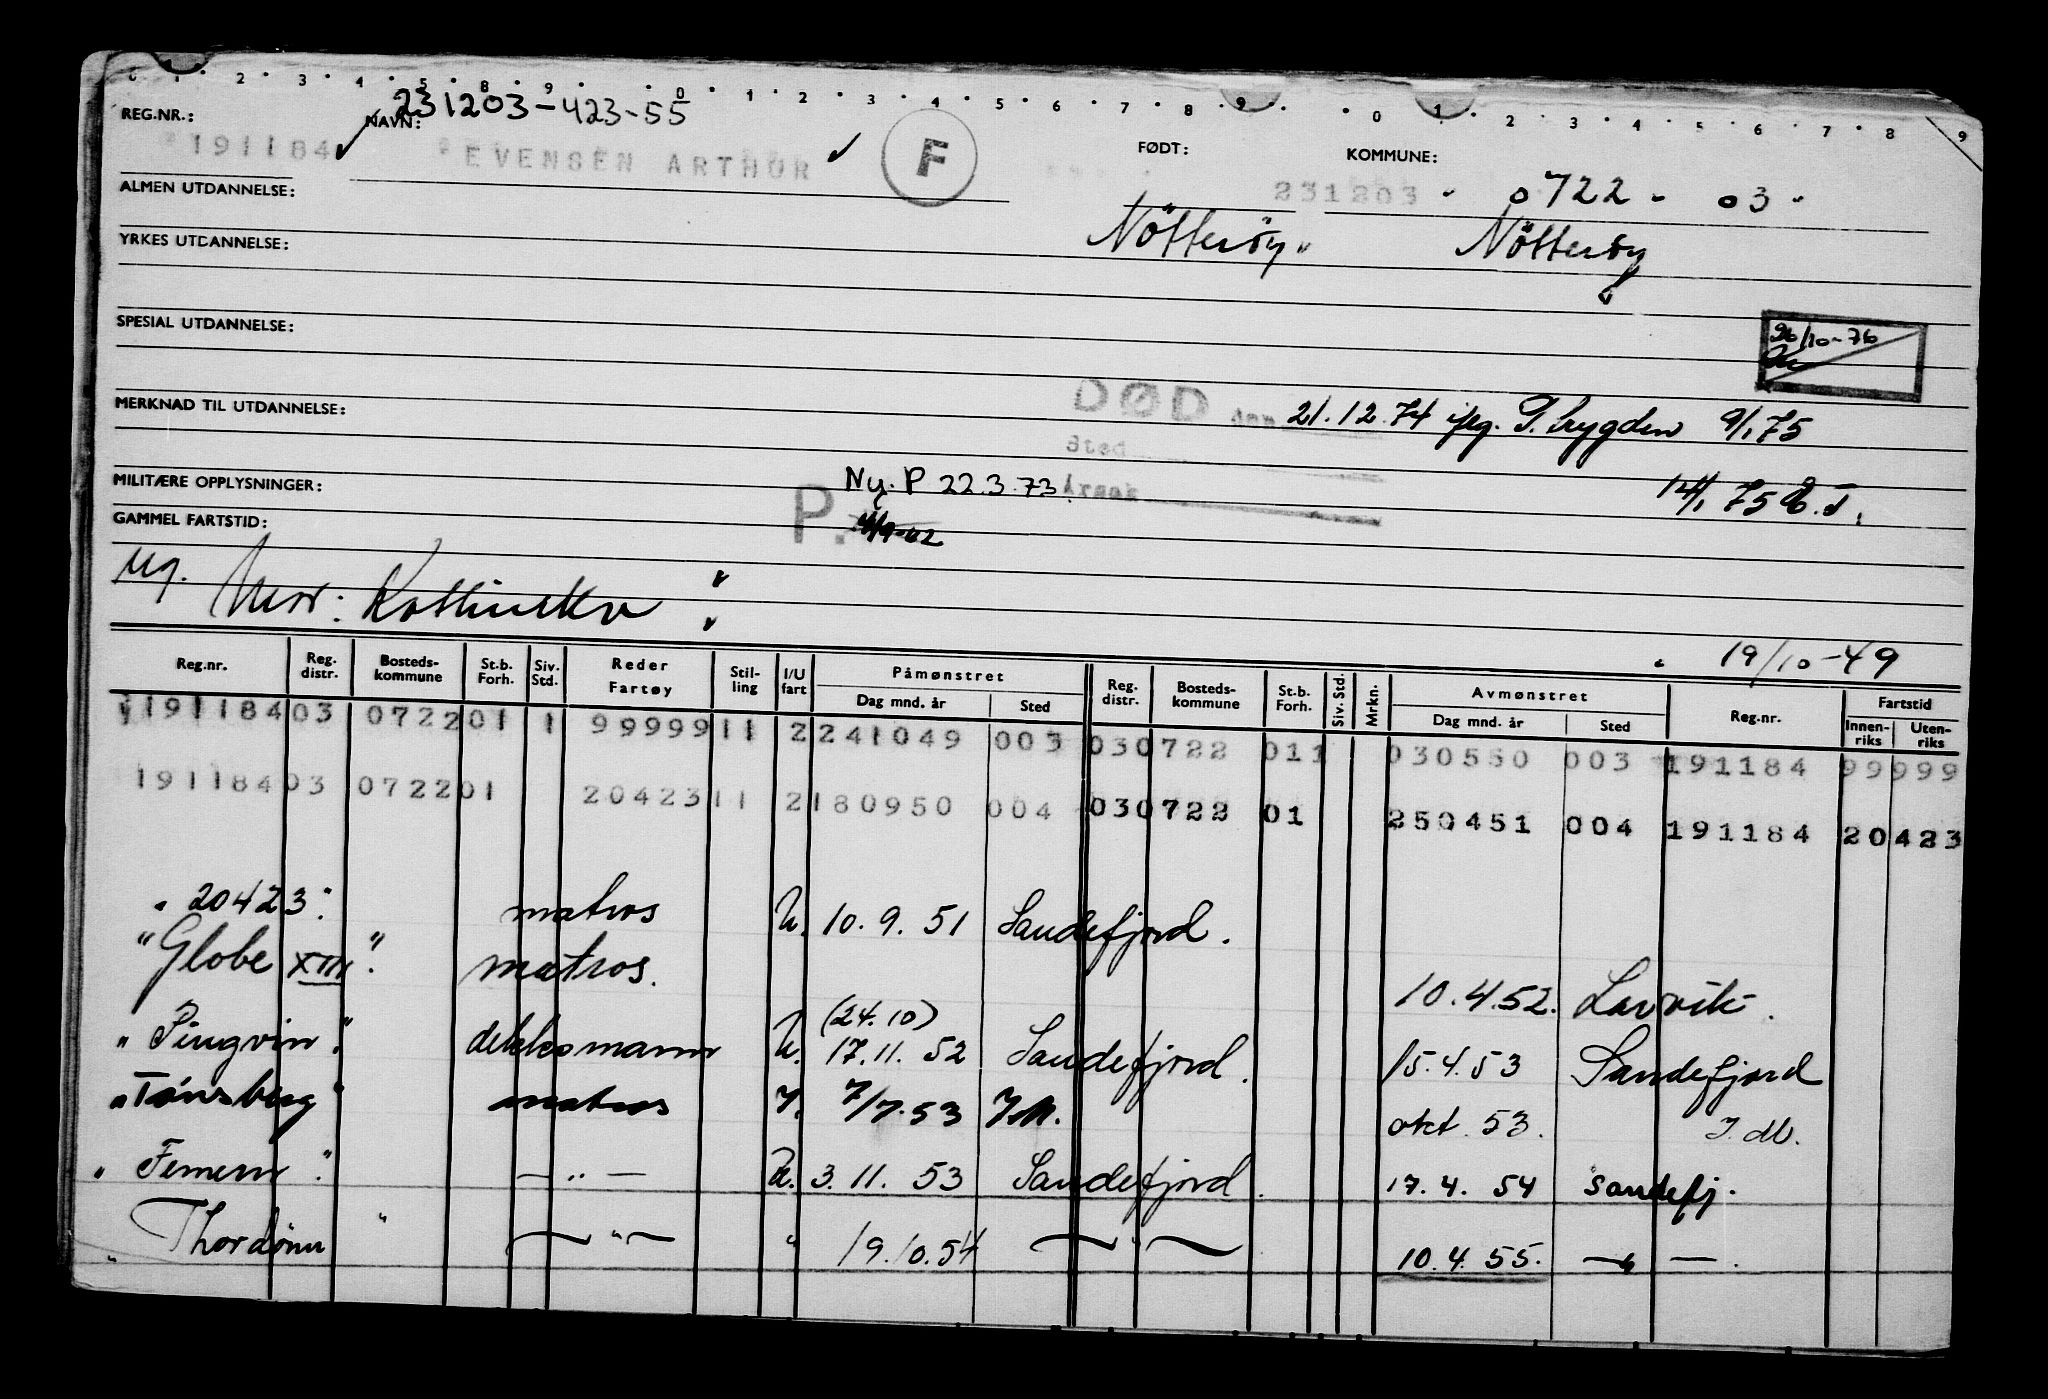 0 1 2 3 4 5 8 9 0 1 2 3 4 5 6 7 8 9 0 1 2 3 4 5 6 7 8 9
231203-423-55
REG.NR.: NAVN: FØDT: KOMMUNE:
191184 EVENSEN ARTHUR F 231203 - 0722 - 03 -
ALMEN UTDANNELSE:
Nötteröy Nötteröy
YRKES UTDANNELSE:
SPESIAL UTDANNELSE:
26/10-76
MERKNAD TIL UTDANNELSE:
DØD den 21.12.74 ifлg. T. trygden 9/1 75
Sted
MILITÆRE OPPLYSNINGER: Ny. P 22.3.73 Årsak 14/1 75
GAMMEL FARTSTID: P.
ug. Mor:
19/10-49
Reg.nr. Reg. distr. Bosteds-kommune St.b. Forh. Siv. Std. Reder Fartøy Stil-ling I/U fart Påmønstret Dag mnd. år Sted Reg. distr. Bosteds-kommune St.b. Forh. Siv. Std. Mrkn. Avmønstret Dag mnd. år Sted Reg.nr. Fartstid Innen-riks Uten-riks
191184 03 0722 01 1 99999 11 2 241049 003 03 0722 01 1 030550 003 191184 99999
191184 03 0722 01 20423 11 2 180950 004 03 0722 01 250451 004 191184 20423
" 20423" matros U. 10.9.51 Sandefjord.
"Globe XIII". matros. 10.4.52. Larvik.
(24.10)
"Pingvin". dekksmann U. 17.11.52 Sandefjord. 15.4.53 Sandefjord
"Tønsberg" matros I. 7/7.53 I.M. okt. 53. I.M.
"Femern". — " — U. 3.11.53 Sandefjord. 17.4.54 Sandefj.
"Thordønn" — " — " 19.10.54 — " — 10.4.55. — " — .